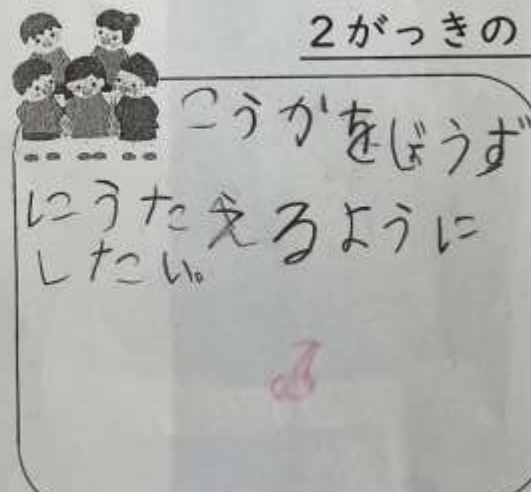 2がっきの
こうかをじょうず
にうたえるように
したい。